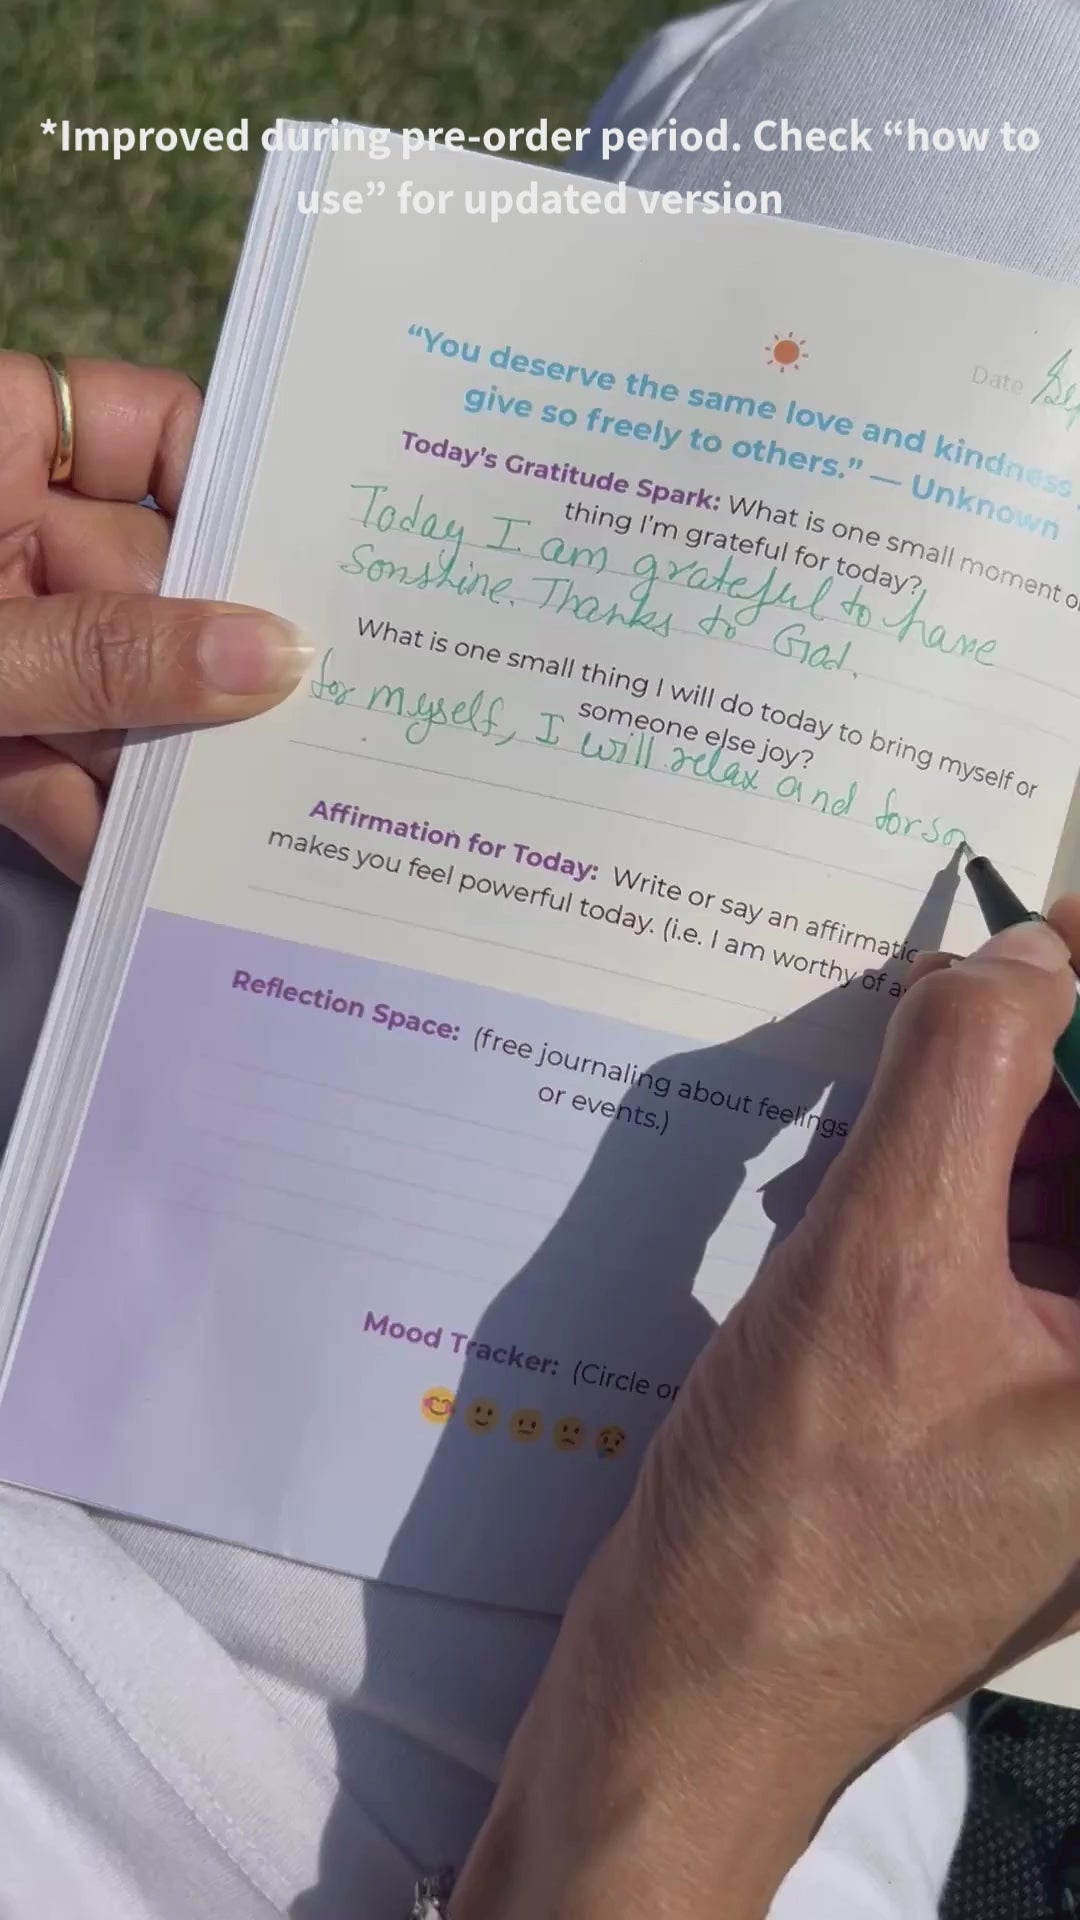 *Improved during pre-order period. Check “how to
use” for updated version
Date
“You deserve the same love and kindness
give so freely to others.” — Unknown
Today's Gratitude Spark: What is one small moment or
thing I'm grateful for today?
Today I am grateful to have
Sonshine. Thanks to God.
What is one small thing I will do today to bring myself or
someone else joy?
for myself, I will relax and for so
Affirmation for Today: Write or say an affirmatio
makes you feel powerful today. (i.e. I am worthy of a
Reflection Space: (free journaling about feelings
or events.)
Mood Tracker: (Circle or